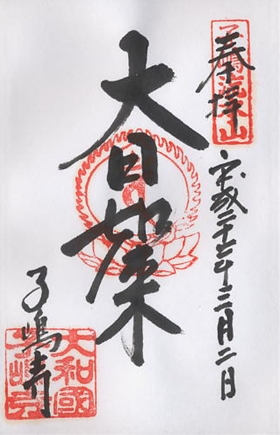 奉拝
平成二十三年三月二日
大日如来
子嶋寺
大和國